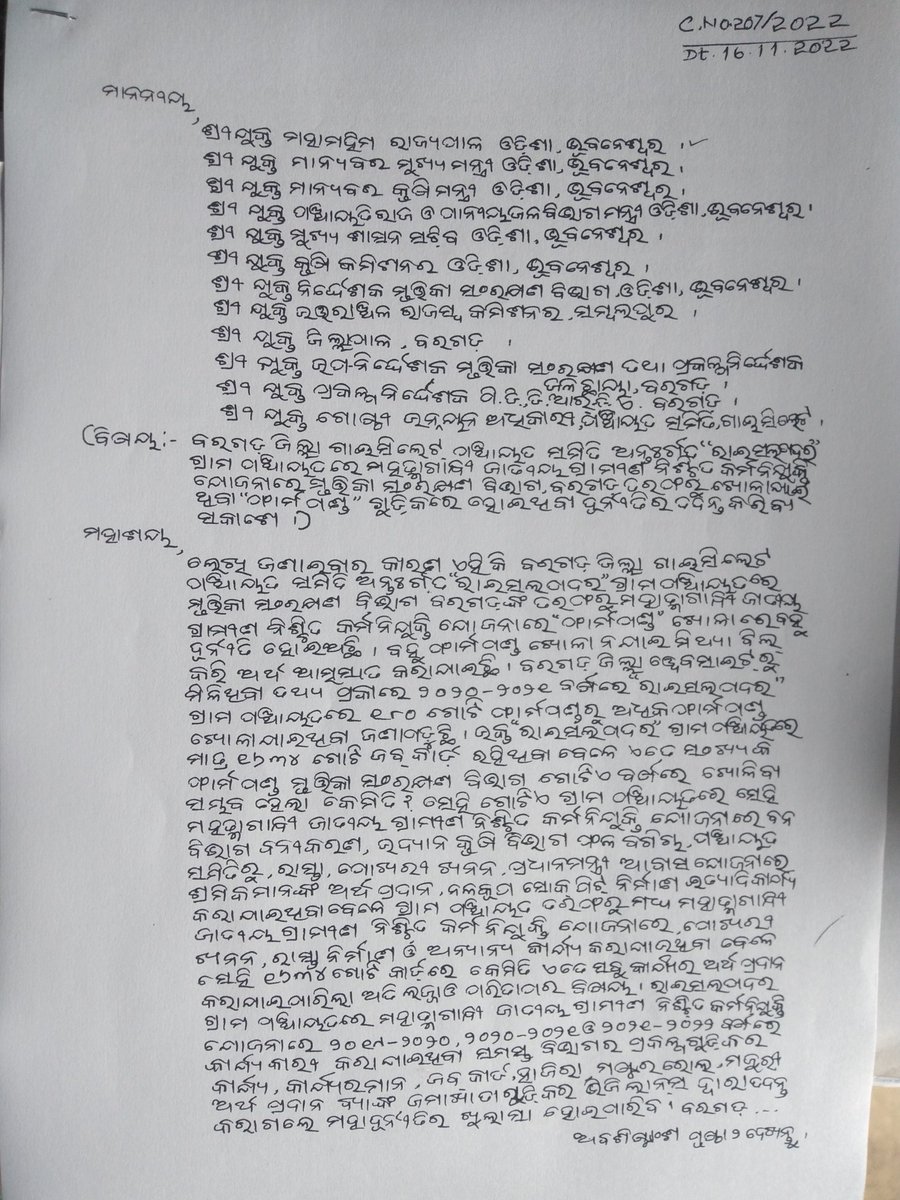 C.No.207/2022
Dt. 16.11.2022
ମାନନୀୟ,
ଶ୍ରୀ ଯୁକ୍ତ ମହାମହିମ ରାଜ୍ୟପାଳ ଓଡ଼ିଶା, ଭୁବନେଶ୍ୱର ।
ଶ୍ରୀ ଯୁକ୍ତ ମାନ୍ୟବର ମୁଖ୍ୟମନ୍ତ୍ରୀ ଓଡ଼ିଶା, ଭୁବନେଶ୍ୱର ।
ଶ୍ରୀ ଯୁକ୍ତ ମାନ୍ୟବର କୃଷିମନ୍ତ୍ରୀ ଓଡ଼ିଶା, ଭୁବନେଶ୍ୱର ।
ଶ୍ରୀ ଯୁକ୍ତ ପଞ୍ଚାୟତିରାଜ ଓ ପାନୀୟଜଳ ବିଭାଗ ମନ୍ତ୍ରୀ ଓଡ଼ିଶା, ଭୁବନେଶ୍ୱର ।
ଶ୍ରୀ ଯୁକ୍ତ ମୁଖ୍ୟ ଶାସନ ସଚିବ ଓଡ଼ିଶା, ଭୁବନେଶ୍ୱର ।
ଶ୍ରୀ ଯୁକ୍ତ କୃଷି କମିଶନର ଓଡ଼ିଶା, ଭୁବନେଶ୍ୱର ।
ଶ୍ରୀ ଯୁକ୍ତ ନିର୍ଦ୍ଦେଶକ ମୃତ୍ତିକା ସଂରକ୍ଷଣ ବିଭାଗ, ଓଡ଼ିଶା, ଭୁବନେଶ୍ୱର ।
ଶ୍ରୀ ଯୁକ୍ତ ଉତ୍ତରାଞ୍ଚଳ ରାଜସ୍ୱ କମିଶନର, ସମ୍ବଲପୁର ।
ଶ୍ରୀ ଯୁକ୍ତ ଜିଲ୍ଲାପାଳ, ବରଗଡ ।
ଶ୍ରୀ ଯୁକ୍ତ ଉପ-ନିର୍ଦ୍ଦେଶକ ମୃତ୍ତିକା ସଂରକ୍ଷଣ ତଥା ପ୍ରକଳ୍ପ ନିର୍ଦ୍ଦେଶକ
ଜଳଛାୟା, ବରଗଡ ।
ଶ୍ରୀ ଯୁକ୍ତ ପ୍ରକଳ୍ପ ନିର୍ଦ୍ଦେଶକ ପି.ଡି.ଡି.ଆର.ଡି.ଏ. ବରଗଡ ।
ଶ୍ରୀ ଯୁକ୍ତ ଗୋଷ୍ଠୀ ଉନ୍ନୟନ ଅଧିକାରୀ, ପଞ୍ଚାୟତ ସମିତି, ଗାଇସିଲେଟ ।
(ବିଷୟ:- ବରଗଡ ଜିଲ୍ଲା ଗାଇସିଲେଟ ପଞ୍ଚାୟତ ସମିତି ଅନ୍ତର୍ଗତ "ରାଇସଲପଦର"
ଗ୍ରାମ ପଞ୍ଚାୟତରେ ମହାତ୍ମାଗାନ୍ଧୀ ଜାତୀୟ ଗ୍ରାମୀଣ ନିଶ୍ଚିତ କର୍ମନିଯୁକ୍ତି
ଯୋଜନାରେ ମୃତ୍ତିକା ସଂରକ୍ଷଣ ବିଭାଗ, ବରଗଡ ତରଫରୁ ଖୋଳାଯାଇ
ଥିବା "ଫାର୍ମ ପଣ୍ଡ" ଗୁଡ଼ିକରେ ହୋଇଥିବା ଦୁର୍ନୀତିର ତଦନ୍ତ କରିବା
ସକାଶେ ।)
ମହାଶୟ,
ଲେଖି ଜଣାଇବାର କାରଣ ଏହି କି ବରଗଡ ଜିଲ୍ଲା ଗାଇସିଲେଟ
ପଞ୍ଚାୟତ ସମିତି ଅନ୍ତର୍ଗତ "ରାଇସଲପଦର" ଗ୍ରାମ ପଞ୍ଚାୟତରେ
ମୃତ୍ତିକା ସଂରକ୍ଷଣ ବିଭାଗ ବରଗଡଙ୍କ ତରଫରୁ ମହାତ୍ମାଗାନ୍ଧୀ ଜାତୀୟ
ଗ୍ରାମୀଣ ନିଶ୍ଚିତ କର୍ମନିଯୁକ୍ତି ଯୋଜନାରେ "ଫାର୍ମପଣ୍ଡ" ଖୋଳାରେ ବହୁ
ଦୁର୍ନୀତି ହୋଇଅଛି । ବହୁ ଫାର୍ମପଣ୍ଡ ଖୋଳା ନଯାଇ ମିଥ୍ୟା ବିଲ୍
କରି ଅର୍ଥ ଆତ୍ମସାତ କରାଯାଇଛି । ବରଗଡ ଜିଲ୍ଲା ୱେବସାଇଟ୍ ରୁ
ମିଳିଥିବା ତଥ୍ୟ ପ୍ରକାରେ ୨୦୨୦-୨୦୨୧ ବର୍ଷରେ ରାଇସଲପଦର"
ଗ୍ରାମ ପଞ୍ଚାୟତରେ ୧୮୦ ଗୋଟି ଫାର୍ମପଣ୍ଡରୁ ଅଧିକ ଫାର୍ମ ପଣ୍ଡ
ଖୋଳାଯାଇଥିବା ଜଣାପଡୁଛି । ଉକ୍ତ "ରାଇସଲପଦର" ଗ୍ରାମ ପଞ୍ଚାୟତରେ
ମାତ୍ର ୧୬୩୪ ଗୋଟି ଜବ୍ କାର୍ଡ ରହିଥିବା ବେଳେ ଏତେ ସଂଖ୍ୟକ
ଫାର୍ମ ପଣ୍ଡ ମୃତ୍ତିକା ସଂରକ୍ଷଣ ବିଭାଗ ଗୋଟିଏ ବର୍ଷରେ ଖୋଳିବା
ସମ୍ଭବ ହେଲା କେମିତି ? ସେହି ଗୋଟିଏ ଗ୍ରାମ ପଞ୍ଚାୟତରେ ସେହି
ମହାତ୍ମାଗାନ୍ଧୀ ଜାତୀୟ ଗ୍ରାମୀଣ ନିଶ୍ଚିତ କର୍ମନିଯୁକ୍ତି ଯୋଜନାରେ ବନ
ବିଭାଗ ବନୀକରଣ, ଉଦ୍ୟାନ କୃଷି ବିଭାଗ ଫଳ ବଗିଚା, ପଞ୍ଚାୟତ
ସମିତିରୁ, ରାସ୍ତା, ପୋଖରୀ ଖନନ, ପ୍ରଧାନମନ୍ତ୍ରୀ ଆବାସ ଯୋଜନାରେ
ଶ୍ରମିକମାନଙ୍କ ଅର୍ଥ ପ୍ରଦାନ, ନଳକୂପ ସୋକ ପିଟ୍ ନିର୍ମାଣ ଇତ୍ୟାଦି କାର୍ଯ୍ୟ
କରାଯାଇଥିବା ବେଳେ ଗ୍ରାମ ପଞ୍ଚାୟତ ତରଫରୁ ମଧ୍ୟ ମହାତ୍ମାଗାନ୍ଧୀ
ଜାତୀୟ ଗ୍ରାମୀଣ ନିଶ୍ଚିତ କର୍ମ ନିଯୁକ୍ତି ଯୋଜନାରେ, ପୋଖରୀ
ଖନନ, ରାସ୍ତା ନିର୍ମାଣ ଓ ଅନ୍ୟାନ୍ୟ କାର୍ଯ୍ୟ କରାଯାଇଥିବା ବେଳେ
ସେହି ୧୬୩୪ ଗୋଟି କାର୍ଡରେ କେମିତି ଏତେ ସବୁ କାର୍ଯ୍ୟର ଅର୍ଥ ପ୍ରଦାନ
କରାଯାଇପାରିଲା ଅତି ଲଜ୍ଜା ଓ ପରିତାପର ବିଷୟ । ରାଇସଲପଦର
ଗ୍ରାମ ପଞ୍ଚାୟତରେ ମହାତ୍ମାଗାନ୍ଧୀ ଜାତୀୟ ଗ୍ରାମୀଣ ନିଶ୍ଚିତ କର୍ମନିଯୁକ୍ତି
ଯୋଜନାରେ ୨୦୧୯-୨୦୨୦, ୨୦୨୦-୨୦୨୧ ଓ ୨୦୨୧-୨୦୨୨ ବର୍ଷରେ
କାର୍ଯ୍ୟକାରୀ କରାଯାଇଥିବା ସମସ୍ତ ବିଭାଗର ପ୍ରକଳ୍ପଗୁଡ଼ିକର
କାର୍ଯ୍ୟ, କାର୍ଯ୍ୟରମାନ, ଜବ କାର୍ଡ, ହାଜିରା, ମଷ୍ଟର ରୋଲ, ମଜୁରୀ
ଅର୍ଥ ପ୍ରଦାନ ବ୍ୟାଙ୍କ ଜମାଖାତାଗୁଡ଼ିକର ଭିଜିଲାନ୍ସ ଦ୍ୱାରା ତଦନ୍ତ
କରାଗଲେ ମହାଦୁର୍ନୀତିର ଖୁଲାସା ହୋଇପାରିବ । ବରଗଡ...
ଅବଶିଷ୍ଟାଂଶ ପୃଷ୍ଠା ୨ ଦେଖନ୍ତୁ ।